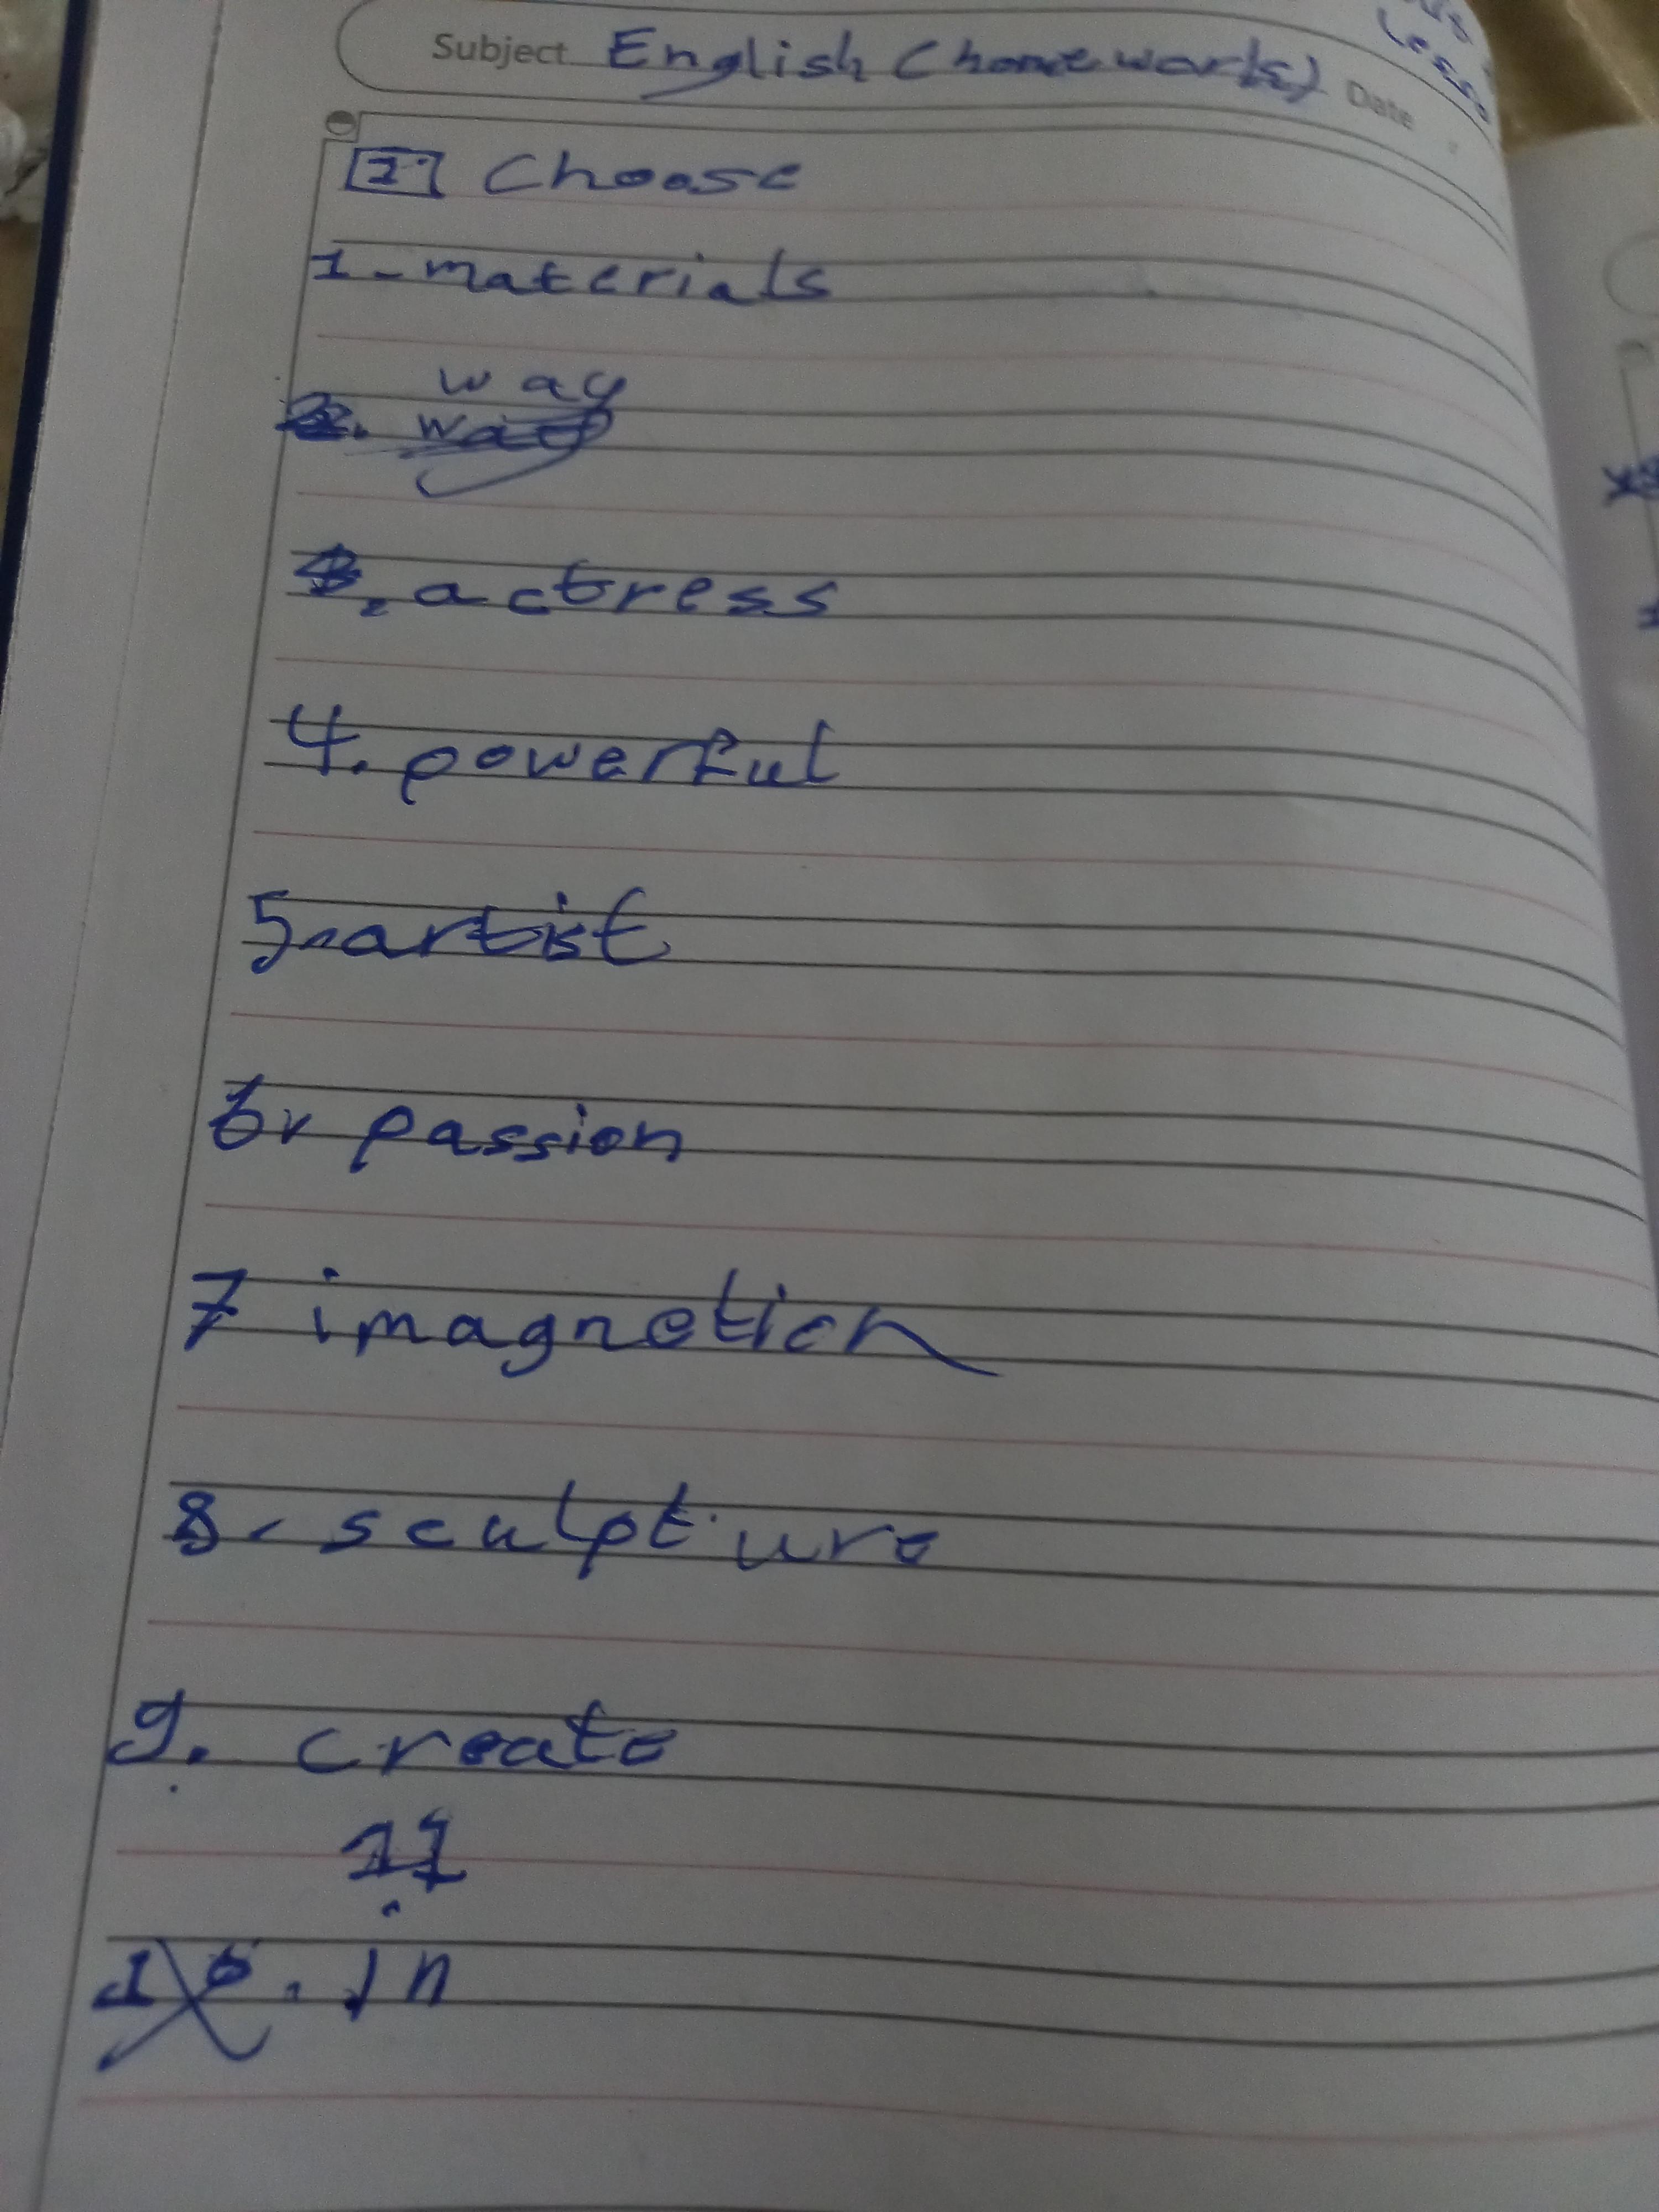 Subject English (home works) Date
2 Choose
1-materials
way
2.
3. actress
4. powerful
5.artist
6. passion
7 imagnetion
8. sculpture
9. create
11
10. In